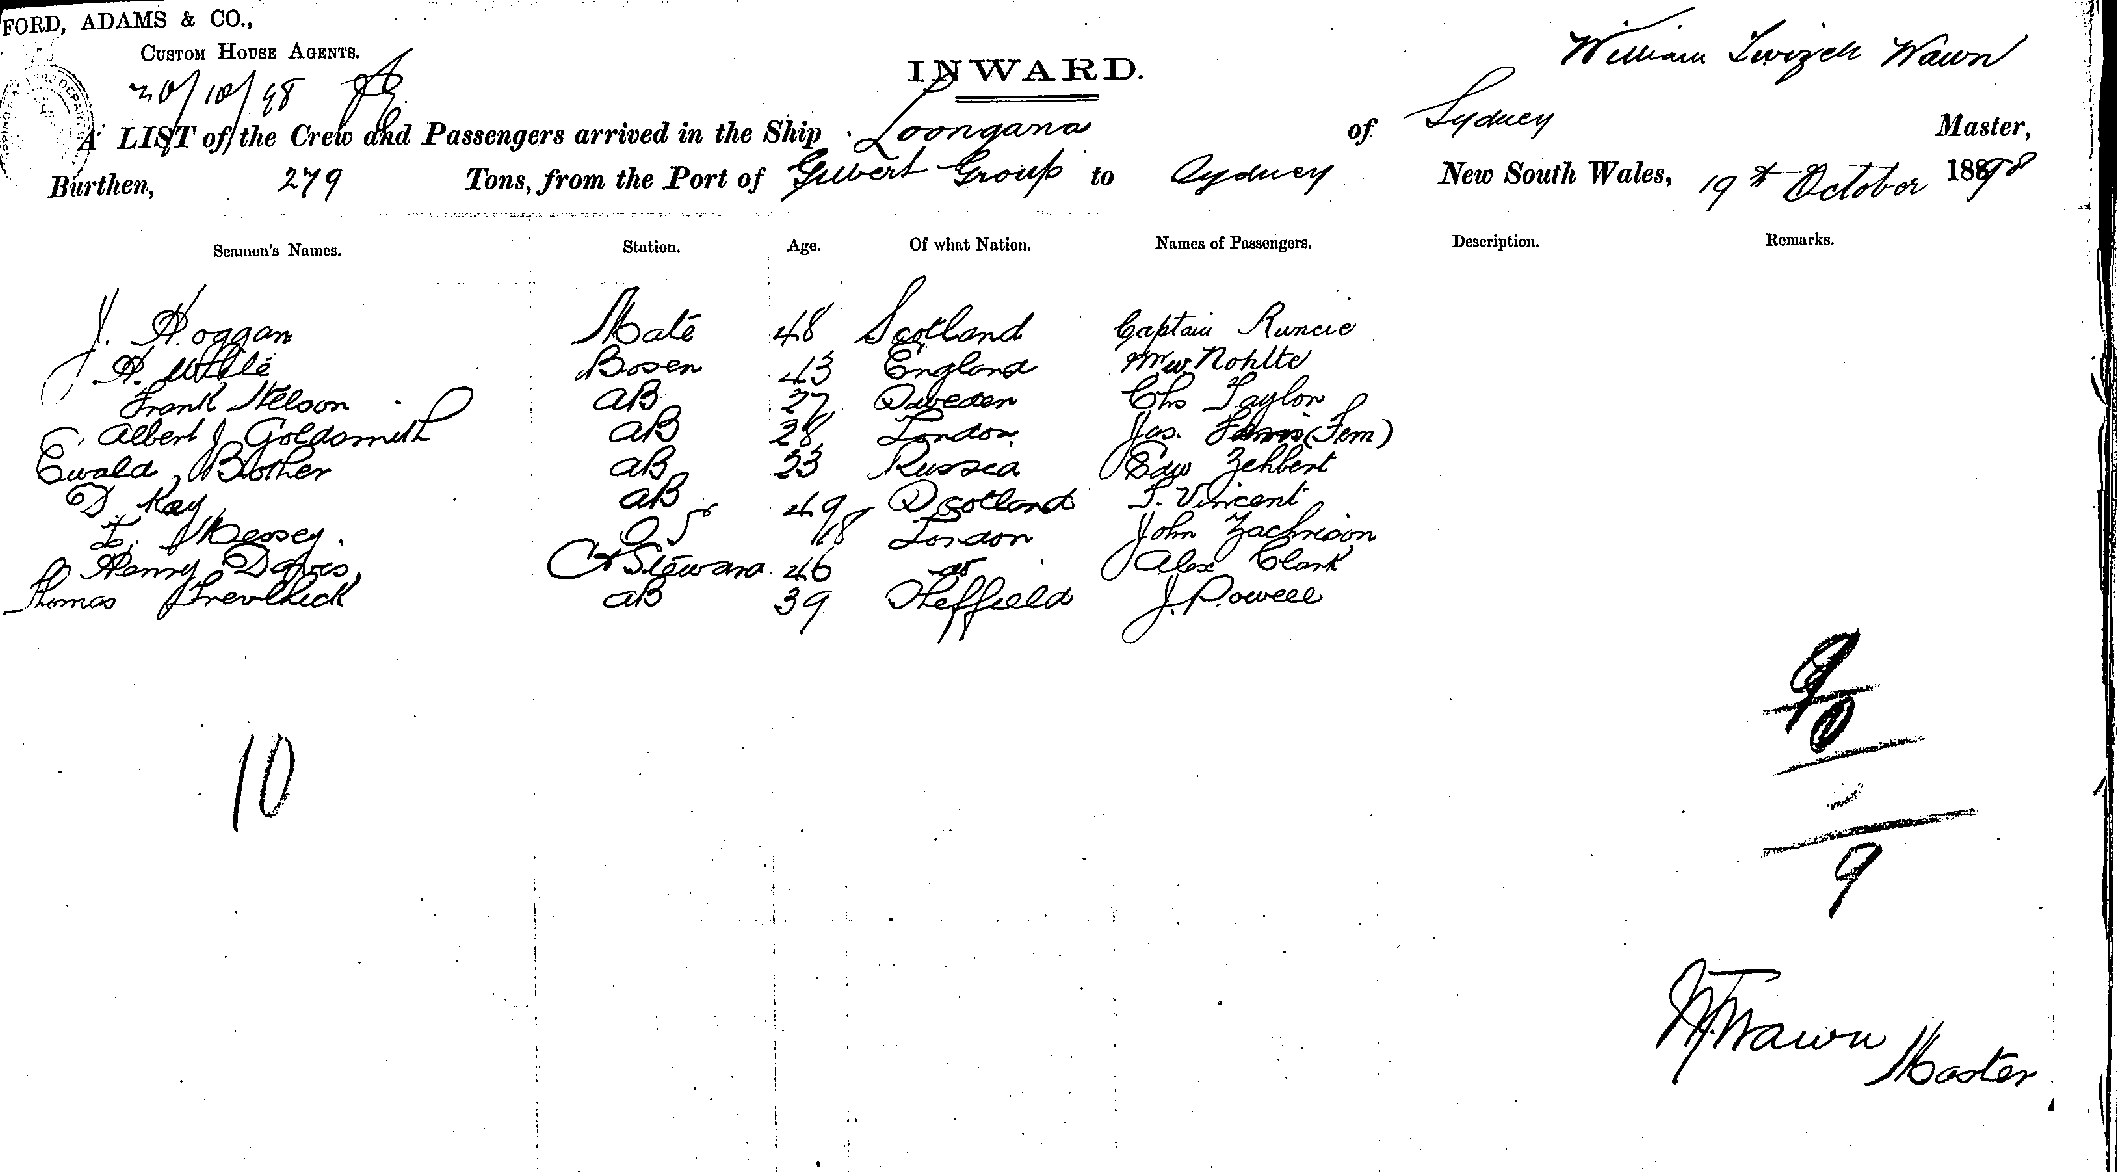 FORD, ADAMS & CO.,
CUSTOM HOUSE AGENTS.
20/10/98
INWARD.
William Twizell Wawn
A LIST of the Crew and Passengers arrived in the Ship Loongana of Sydney Master,
Burthen, 279 Tons, from the Port of Gilbert Group to Sydney New South Wales, 19th October 1898
Seamen's Names. Station. Age. Of what Nation. Names of Passengers. Description. Remarks.
J. Hoggan Mate 48 Scotland Captain Runcie
H. White Bosen 43 England Nohlte
Frank Nelson AB 27 Sweden Chs Taylor
Albert J Goldsmith AB 28 London Jas. (Fem)
Ewald Blother AB 23 Russia Edw Zehbert
D. Kay AB 49 Scotland T. Vincent
Messey. OS 18 London John Zachrison
Henry Davis C & Steward 46 do Alex Clark
Thomas Prevthick AB 39 Sheffield J. Powell
10
9
0
9
W.T. Wawn
Master